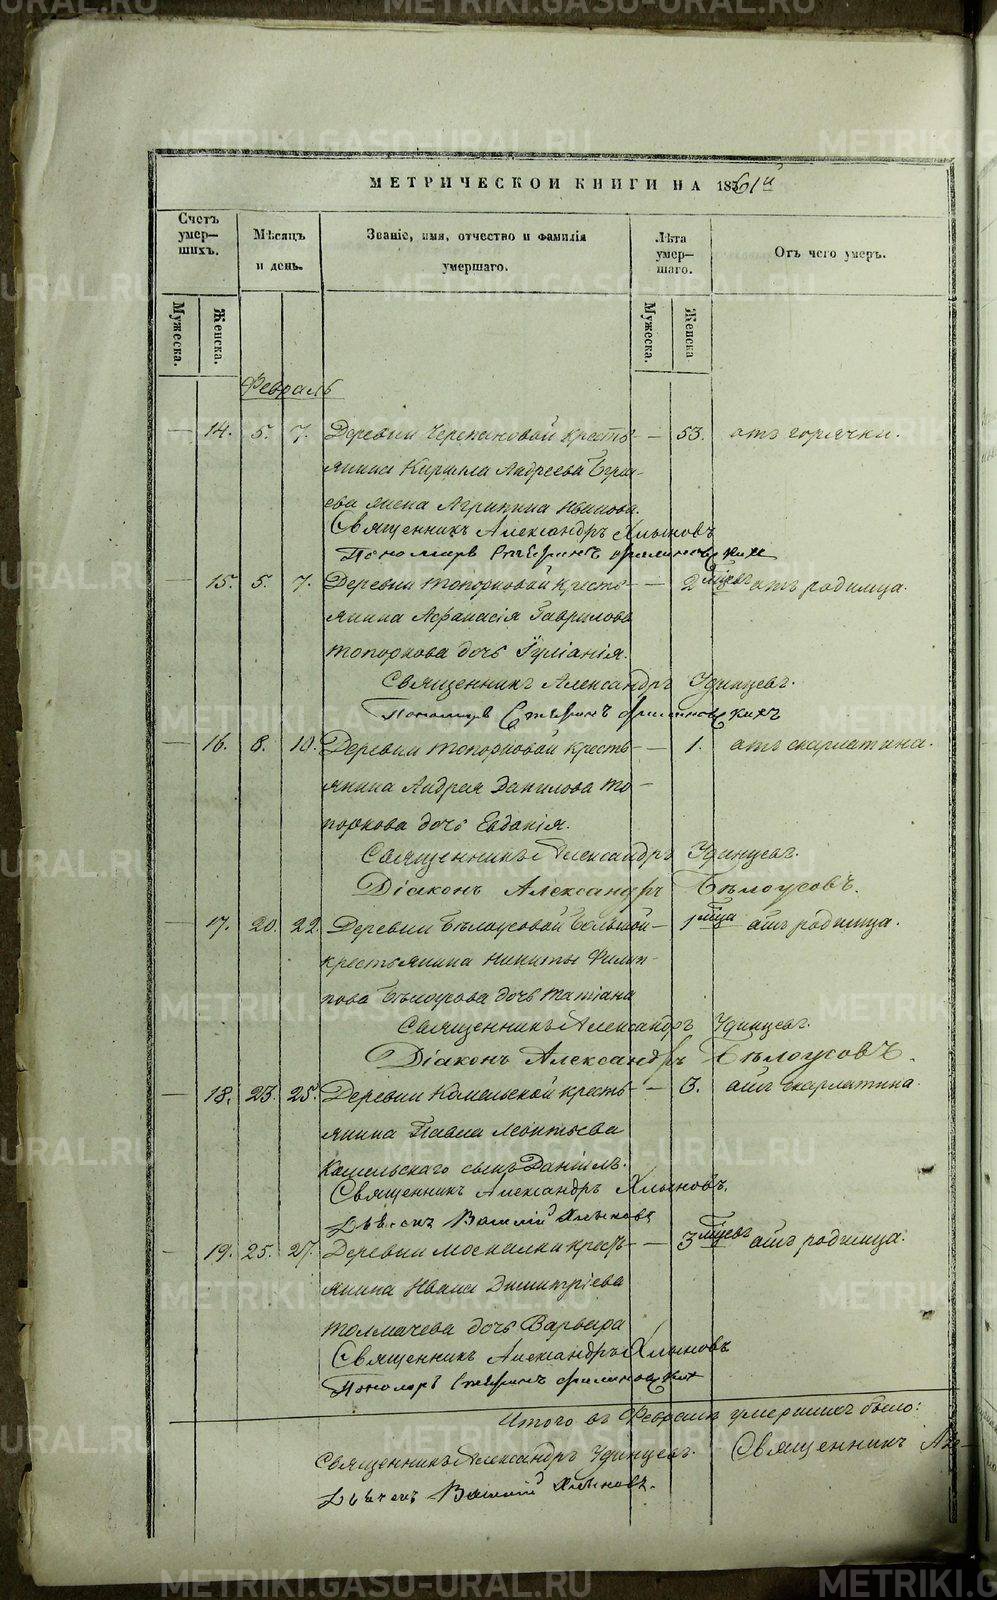 METRIKI.GASO-URAL.RU
МЕТРИЧЕСКОЙ КНИГИ НА 1861й
Счетъ умер-
шихъ.
Мѣсяцъ
и день.
Званіе, имя, отчество и фамилія
умершаго.
Лѣта
умер-
шаго.
Отъ чего умеръ.
Мужеска.
Женска.
Мужеска.
Женска
Февраль
— 14. 5. 7. Деревни Черепановой кресть- — 53. отъ горячки.
янина Кирила Андреева
ева жена Агрипина Иванова.
Священникъ Александръ Хлыновъ
Пономарь Стефанъ
— 15. 5. 7. Деревни Топорковой кресть- — 2 мѣсяц. отъ родимца.
янина Афанасія Гаврилова
Топоркова дочь Іуліанія.
Священникъ Александръ Удинцевъ.
Пономарь Стефанъ
— 16. 8. 10. Деревни Топорковой кресть- — 1. отъ скарлатина.
янина Андрея Данилова То-
поркова дочь Евдокія.
Священникъ Александръ Удинцевъ.
Діаконъ Александръ Бѣлоусовъ.
— 17. 20. 22. Деревни Бѣлоусовой Большой — 1 мѣца отъ родимца.
крестьянина Никиты Филип-
пова Бѣлоусова дочь Татіана
Священникъ Александръ Удинцевъ.
Діаконъ Александръ Бѣлоусовъ.
— 18. 23. 25. Деревни Комельской кресть- — 3. отъ скарлатина.
янина Павла Леонтьева
Комельскаго сынъ Даніилъ.
Священникъ Александръ Хлыновъ.
Дьячекъ Василій Хлыновъ
— 19. 25. 27. Деревни Москалки кресть- — 3 мѣсяц. отъ родимца.
янина Ивана Димитріева
Толмачева дочь Варвара
Священникъ Александръ Хлыновъ
Пономарь Стефанъ
Итого въ Февралѣ умершихъ было:
Священникъ Александръ Удинцевъ. Священникъ Але-
Дьячекъ Василій Хлыновъ.